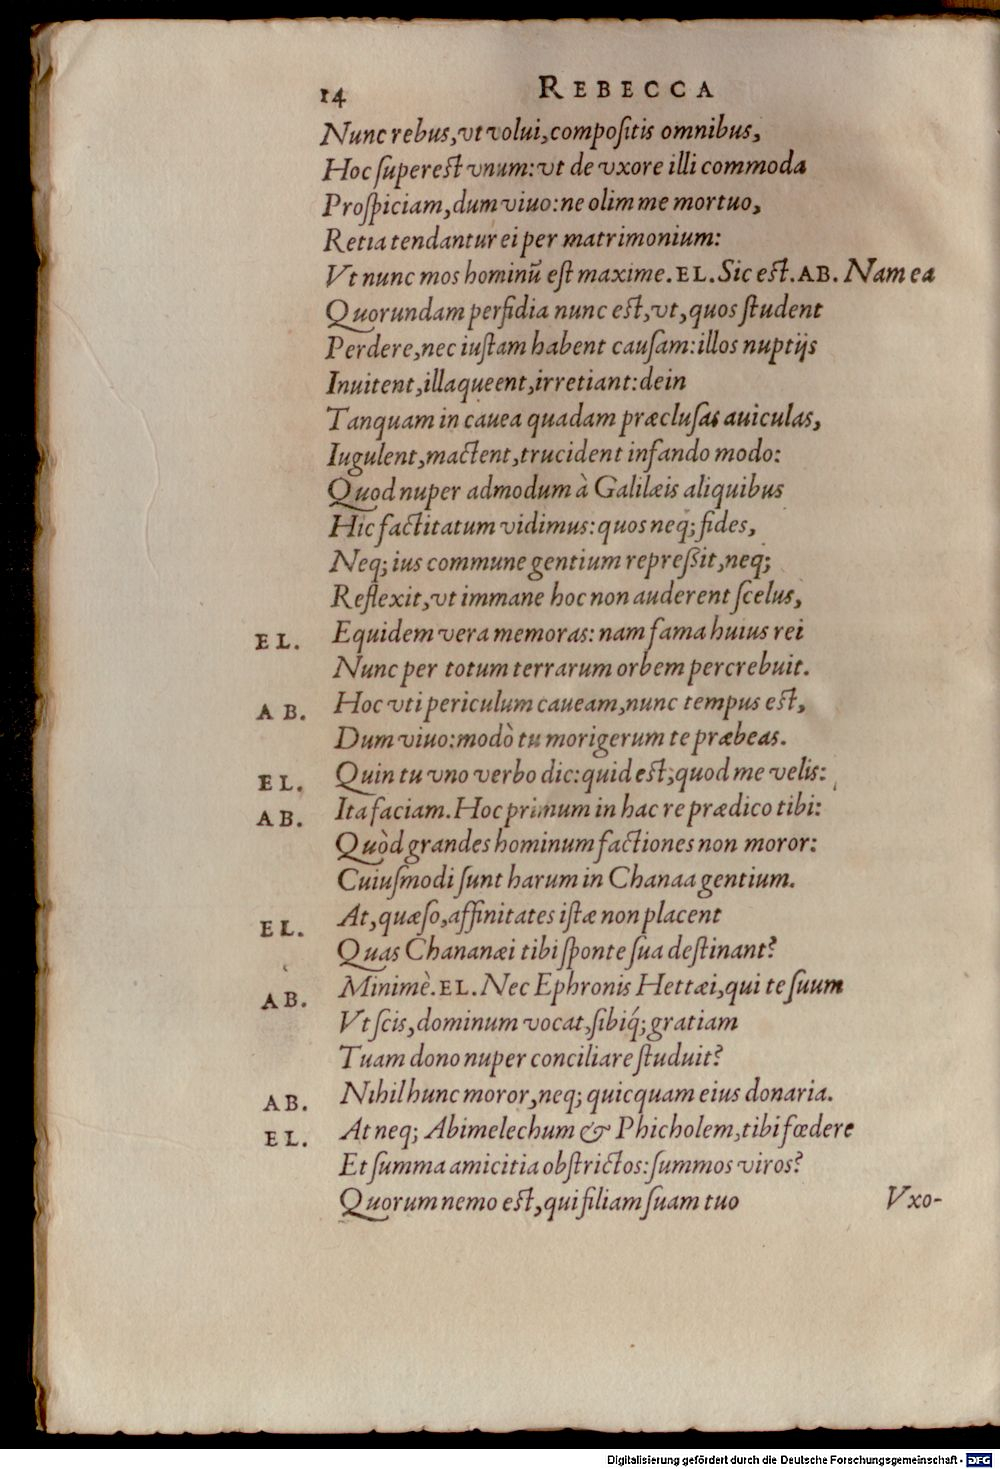 14 REBECCA
Nunc rebus, vt volui, compoſitis omnibus,
Hoc ſupereſt vnum: vt de vxore illi commoda
Proſpiciam, dum viuo: ne olim me mortuo,
Retia tendantur ei per matrimonium:
Vt nunc mos hominũ eſt maxime. EL. Sic eſt. AB. Nam ea
Quorundam perfidia nunc eſt, vt, quos ſtudent
Perdere, nec iuſtam habent cauſam: illos nuptijs
Inuitent, illaqueent, irretiant: dein
Tanquam in cauea quadam præcluſas auiculas,
Iugulent, mactent, trucident infando modo:
Quod nuper admodum à Galilæis aliquibus
Hic factitatum vidimus: quos neq; fides,
Neq; ius commune gentium repreßit, neq;
Reflexit, vt immane hoc non auderent ſcelus,
EL. Equidem vera memoras: nam fama huius rei
Nunc per totum terrarum orbem percrebuit.
AB. Hoc vti periculum caueam, nunc tempus eſt,
Dum viuo: modò tu morigerum te præbeas.
EL. Quin tu vno verbo dic: quid eſt; quod me velis:
AB. Ita faciam. Hoc primum in hac re prædico tibi:
Quòd grandes hominum factiones non moror:
Cuiuſmodi ſunt harum in Chanaa gentium.
EL. At, quæſo, affinitates iſtæ non placent
Quas Chananæi tibi ſponte ſua deſtinant?
AB. Minimè. EL. Nec Ephronis Hettæi, qui te ſuum
Vt ſcis, dominum vocat, ſibiq́; gratiam
Tuam dono nuper conciliare ſtuduit?
AB. Nihil hunc moror, neq; quicquam eius donaria.
EL. At neq; Abimelechum & Phicholem, tibi fœdere
Et ſumma amicitia obſtrictos: ſummos viros?
Quorum nemo eſt, qui filiam ſuam tuo
Vxo-
Digitalisierung gefördert durch die Deutsche Forschungsgemeinschaft - DFG